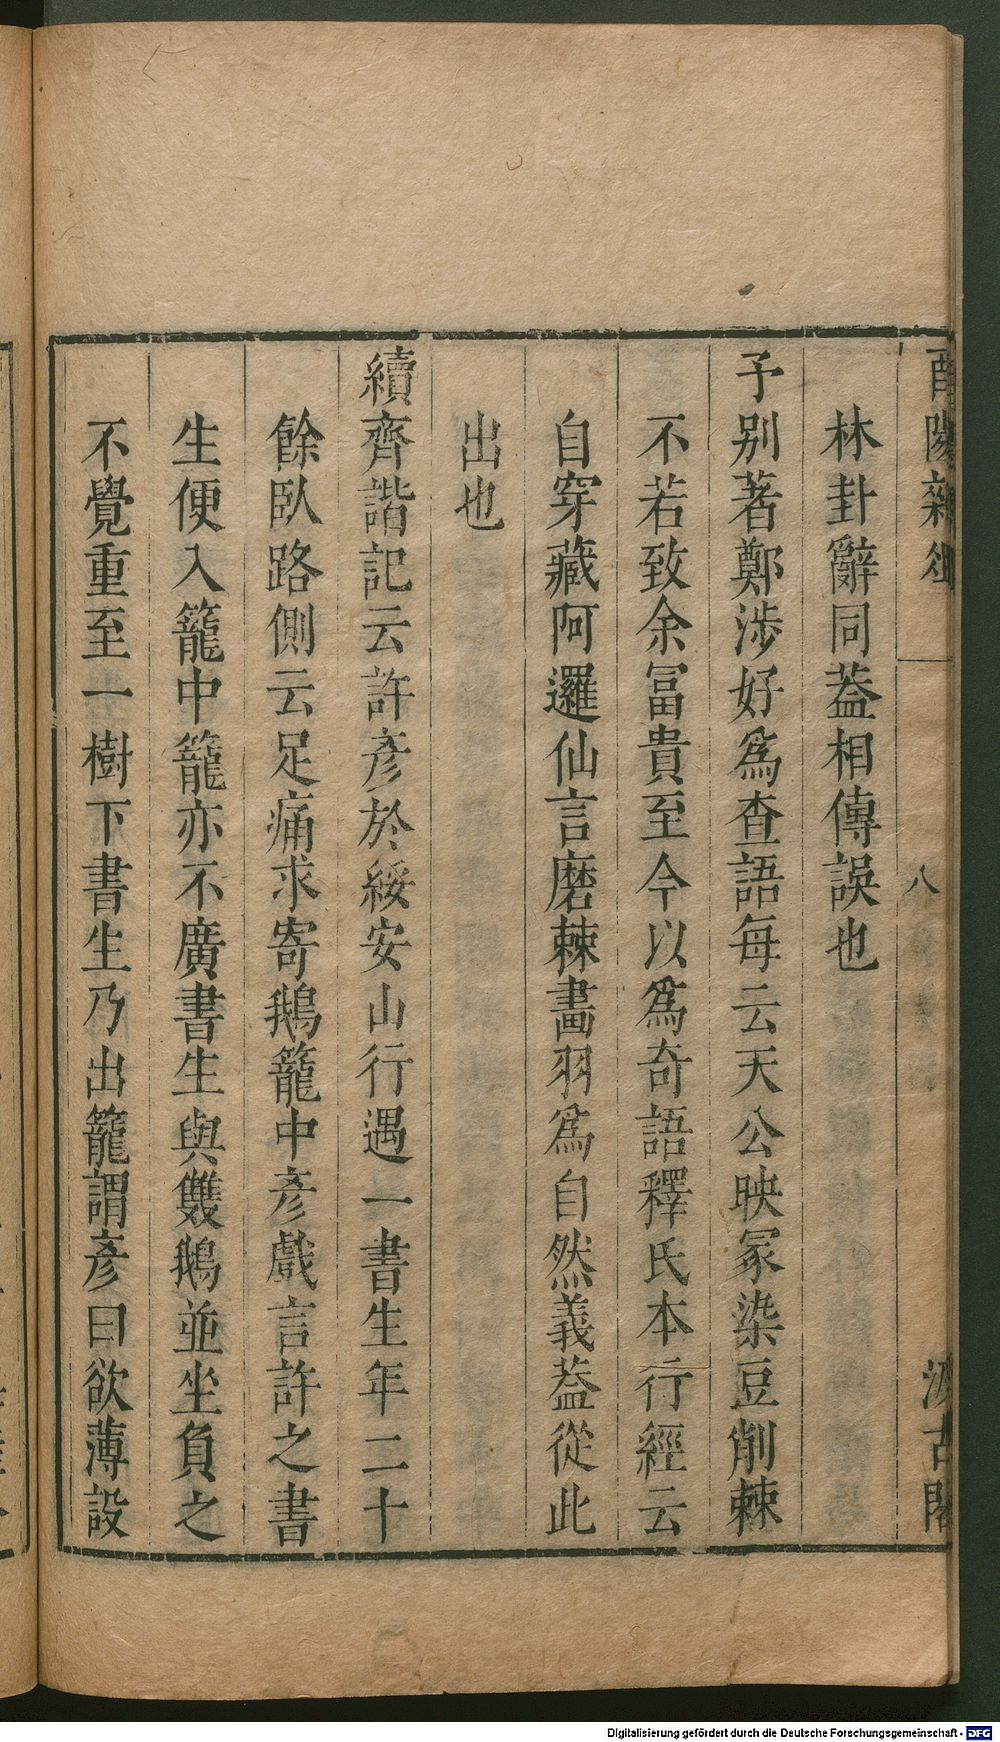 酉陽雜俎
八
汲古閣
林卦辭同葢相傳誤也
予别著鄭涉好爲查語每云天公映冢染豆削棘
不若致余冨貴至今以爲奇語釋氏本行經云
自穿藏阿邏仙言磨棘畫羽爲自然義葢從此
出也
續齊諧記云許彥於綏安山行遇一書生年二十
餘臥路側云足痛求寄鵝籠中彥戲言許之書
生便入籠中籠亦不廣書生與雙鵝並坐負之
不覺重至一樹下書生乃出籠謂彥曰欲薄設
Digitalisierung gefördert durch die Deutsche Forschungsgemeinschaft - DFG